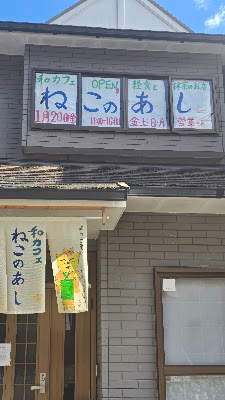 和カフェ
OPEN!
軽食と
抹茶のお店
ねこのあし
1月20日(金)
11:00-16:00
金土日月
営業
和カフェ
ねこのあし